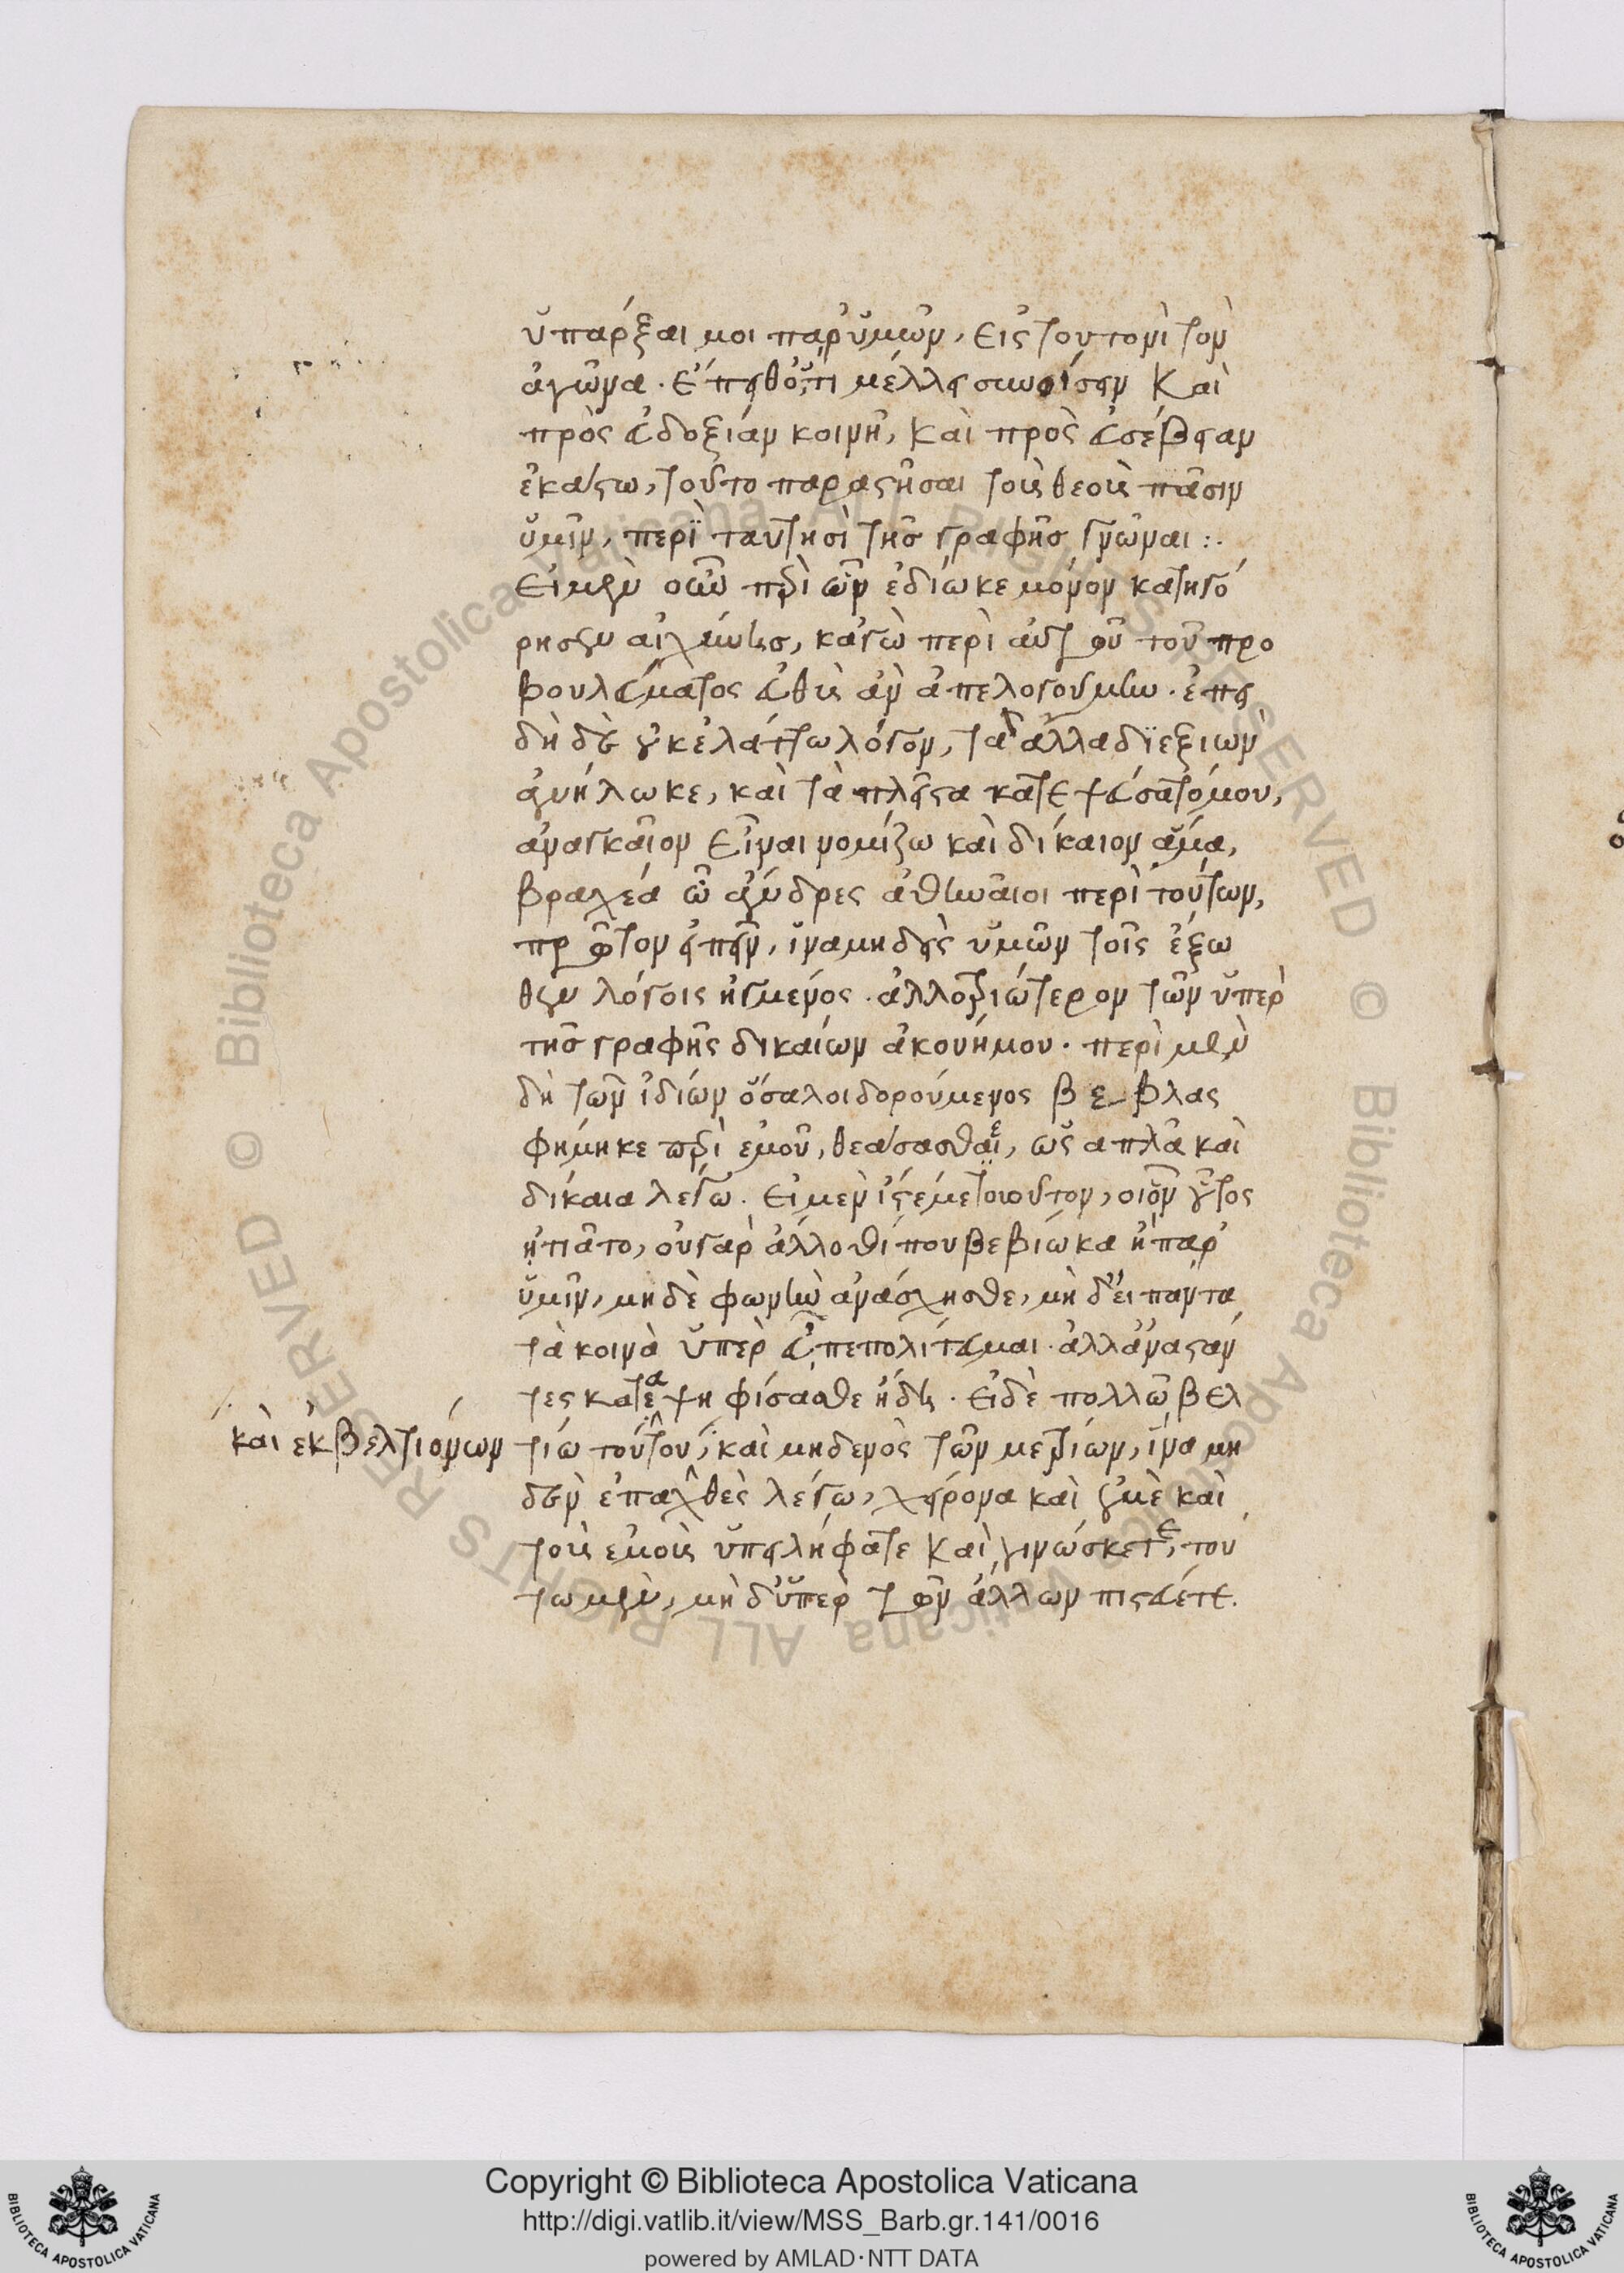 ὑπάρξαι μοι παρ' ὑμῶν, εἰς τουτονὶ τὸν
ἀγῶνα. ἔπειθ' ὅ,τι μέλλει συνοίσειν καὶ
πρὸς εὐδοξίαν κοινῆ, καὶ πρὸς εὐσέβειαν
ἑκάστω, τοῦτο παραστῆσαι τοῖς θεοῖς πᾶσιν
ὑμῖν, περὶ ταυτησὶ τῆς γραφῆς γνῶναι :.
Εἰ μὲν οὖν περὶ ὧν ἐδίωκε μόνον κατηγό
ρησεν αἰσχίνης, κἀγὼ περὶ αὐτοῦ τοῦ προ
βουλεύματος εὐθὺς ἂν ἀπελογούμην. ἐπει
δὴ δὲ οὐκ ἐλάττω λόγον, τὰ δ' ἄλλα διεξιὼν
ἀνήλωκε, καὶ τὰ πλεῖστα κατεψεύσατό μου,
ἀναγκαῖον εἶναι νομίζω καὶ δίκαιον ἅμα,
βραχέα ὦ ἄνδρες ἀθηναῖοι περὶ τούτων,
πρῶτον εἰπεῖν, ἵνα μηδεὶς ὑμῶν τοῖς ἔξω
θεν λόγοις ἠγμένος. ἀλλοτριώτερον τῶν ὑπὲρ
τῆς γραφῆς δικαίων ἀκούη μου. περὶ μὲν
δὴ τῶν ἰδίων ὅσα λοιδορούμενος βεβλασ
φήμηκε περὶ ἐμοῦ, θεάσασθαι ε, ὡς ἁπλᾶ καὶ
δίκαια λέγω. εἰ μὲν ἴστέ με τοιοῦτον, οἷον οὗτος
ἠτιᾶτο, οὐ γὰρ ἄλλοθί που βεβίωκα ἢ παρ'
ὑμῖν, μηδὲ φωνὴν ἀνάσχησθε, μὴ δ' εἰ πάντα
τὰ κοινὰ ὑπὲρ εὖ πεπολίτευμαι. ἀλλ' ἀναστάν
τες καταψηφίσασθε ἤδη. εἰ δὲ πολλῶ βελ
τίω τούτου, καὶ μηδενὸς τῶν μετρίων, ἵνα μη
καὶ ἐκ βελτιόνων
δὲν ἐπαχθὲς λέγω, χείρονα καὶ ἐμὲ καὶ
τοὺς ἐμοὺς ὑπειλήφατε καὶ γινώσκετε, τού
τω μὲν, μὴ δ' ὑπὲρ τῶν ἄλλων πιστεύετε.
Copyright © Biblioteca Apostolica Vaticana
http://digi.vatlib.it/view/MSS_Barb.gr.141/0016
powered by AMLAD·NTT DATA